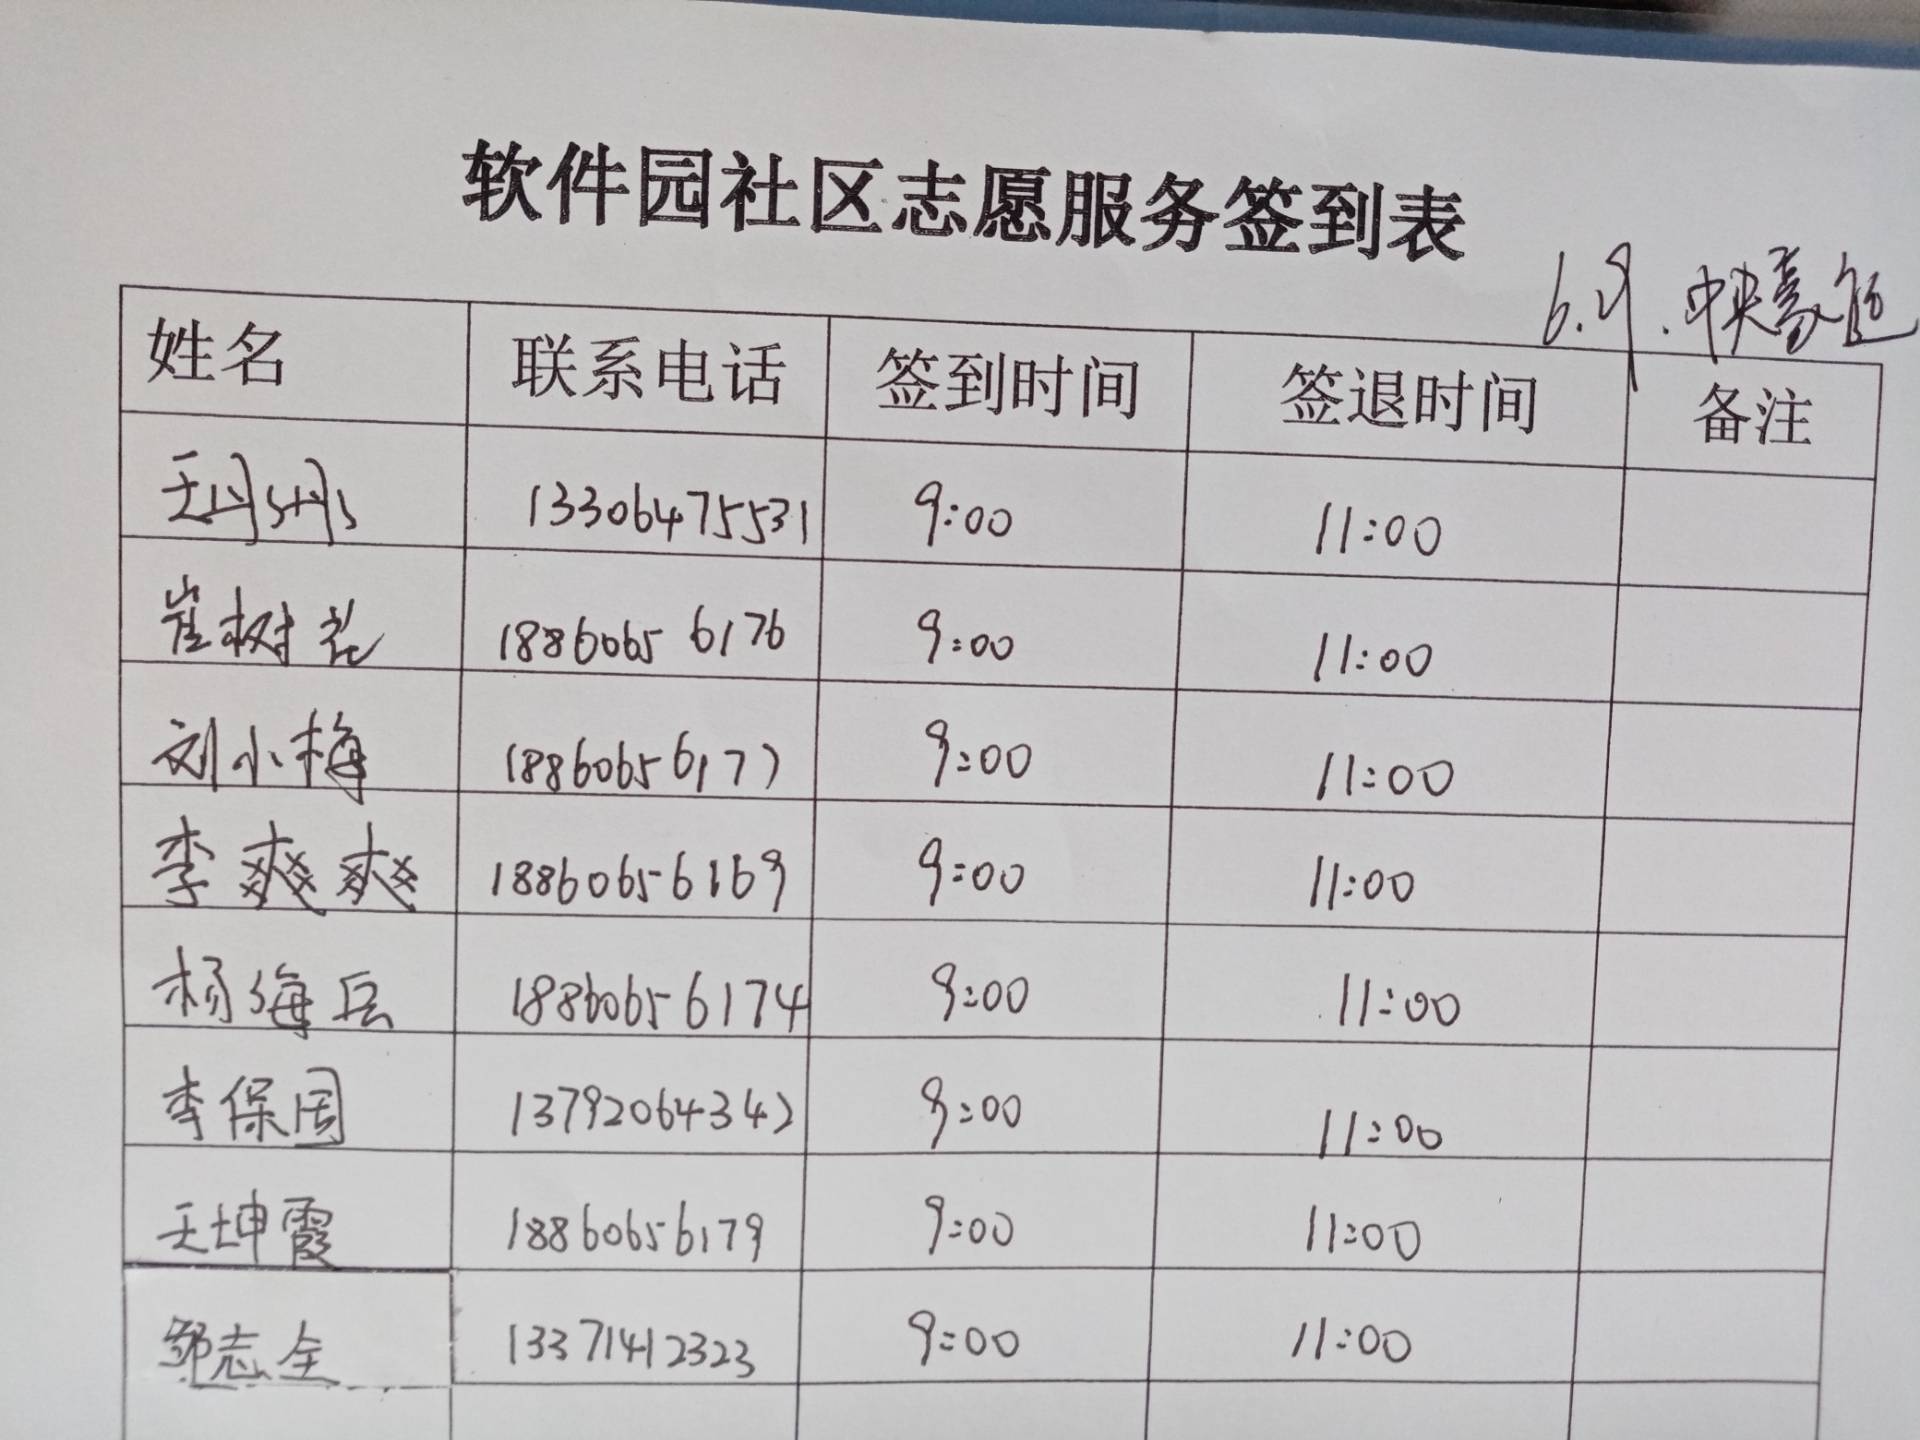 软件园社区志愿服务签到表
6.9.中央豪庭
姓名 联系电话 签到时间 签退时间 备注
王丹丹 13306475531 9:00 11:00
崔树花 18860656176 9:00 11:00
刘小梅 18860656177 9:00 11:00
李爽爽 18860656169 9:00 11:00
杨海兵 18860656174 9:00 11:00
李保国 13792064342 9:00 11:00
王坤霞 18860656179 9:00 11:00
邹志全 13371412323 9:00 11:00